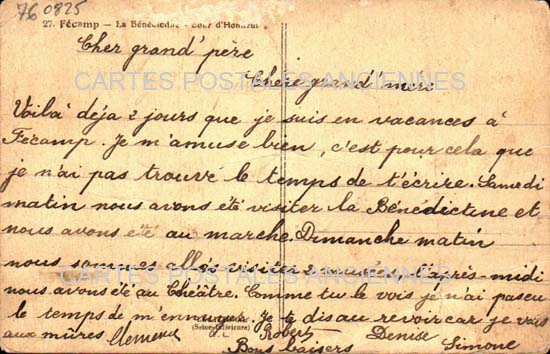 76 0825
27. Fécamp - La Bénédictine - Cour d'Honneur
Cher grand' père
Chère grand' mère
CARTES POSTALES ANCIENNES
Voilà déja 2 jours que je suis en vacances à
Fécamp. Je m'amuse bien, c'est pour cela que
je n'ai pas trouvé le temps de t'écrire. Samedi
matin nous avons été visiter la Bénédictine et
nous avons été au marche. Dimanche matin
nous sommes allés visiter 2 musées. l'après-midi
CARTES POSTALES ANCIENNES
nous avons été au théâtre. Comme tu le vois je n'ai pas eu
le temps de m'ennuyer. Je te dis au revoir car je vais
(Seine-Inférieure)
aux mûres Robert Denise Simone
Bons baisers